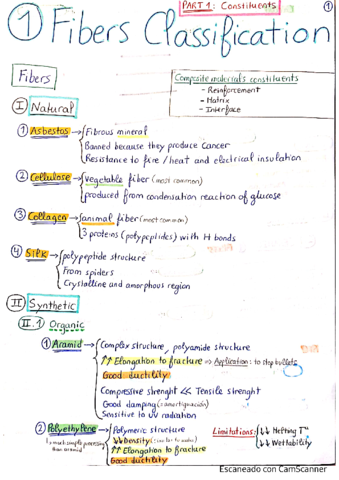 PART 1: Constituents
1
① Fibers Classification
Fibers
Composite materials constituents
- Reinforcement
- Matrix
- Interface
I Natural
① Asbestos
Fibrous mineral
Banned because they produce cancer
Resistance to fire / heat and electrical insulation
② Cellulose
vegetable fiber (most common)
produced from condensation reaction of glucose
③ Collagen
animal fiber (most common)
3 proteins (polypeptides) with H bonds
④ Silk
polypeptide structure
From spiders
Crystalline and amorphous region
II Synthetic
II.1 Organic
① Aramid
Complex structure, polyamide structure
↑↑ Elongation to fracture ⇒ Application: to stop bullets
Good ductility
Compressive strenght << Tensile strenght
Good damping (amortiguación)
Sensitive to UV radiation
② Polyethylene
Polymeric structure
↓↓ Density
↑↑ Elongation to fracture
Good ductility
Limitations:
↓↓ Melting Tª
↓↓ Wettability
Escaneado con CamScanner